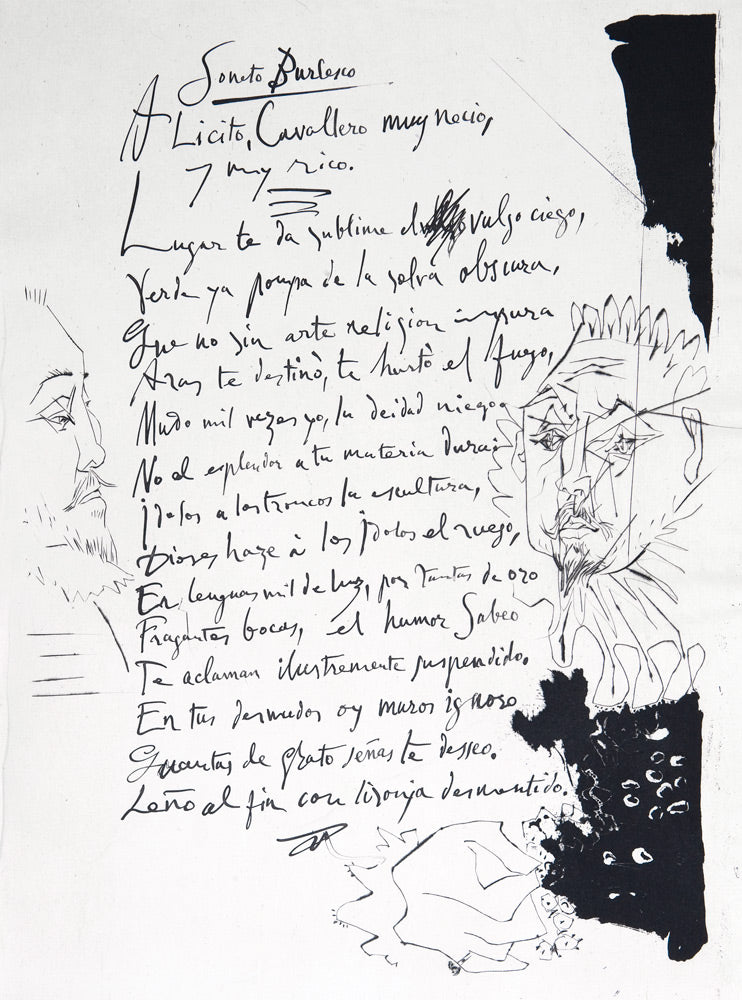 Soneto Burlesco
A Licito, Cavallero muy necio,
y my rico.
Lugar te da sublime el vulgo ciego,
Verde ya pompa de la selva obscura,
Que no sin arte religion impura
Aras te destinò, te hurtò el fuego,
Mudo mil vezes yo, la deidad niego
No el esplendor a tu materia dura:
Idolos a los troncos la escultura,
Dioses haze à los Idolos el ruego,
En lenguas mil de luz, por tantas de oro
Fragantes bocas, el humor Sabeo
Te aclaman ilustremente suspendido.
En tus desnudos oy muros ignoro
Quantas de grato señas te desseo.
Leño al fin con lisonja desmentido.